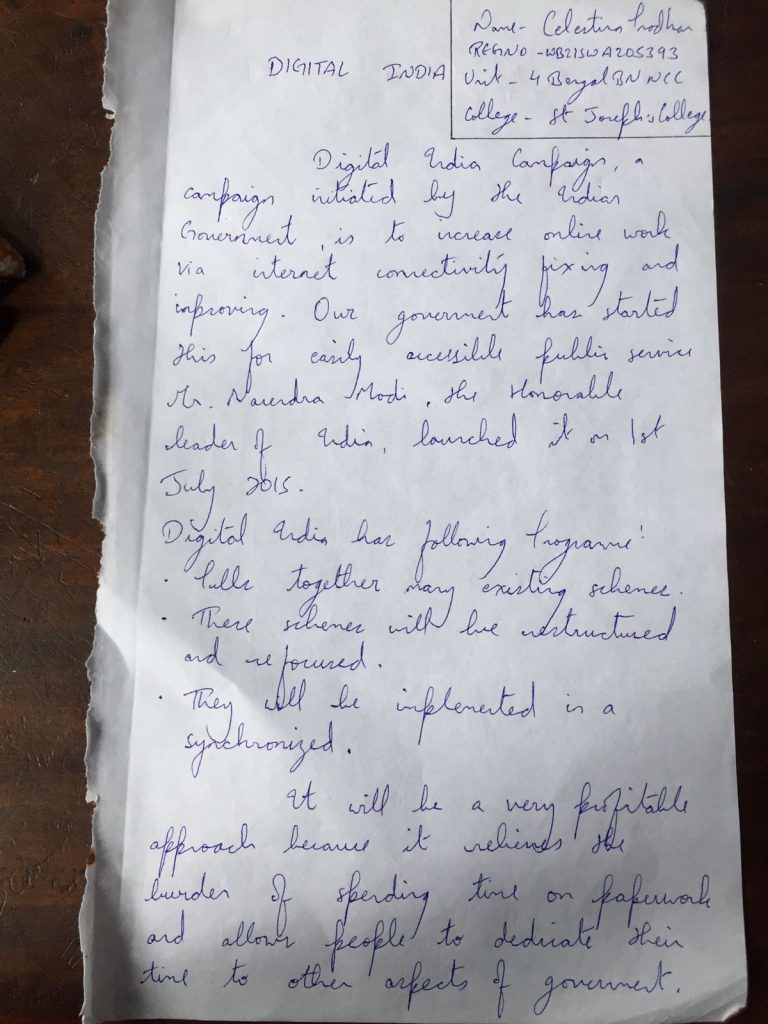 Name- Celestina Pradhan
REGNO -WB21SWA205393
DIGITAL INDIA
Unit - 4 Bengal BN NCC
College - St Joseph's College
Digital India Campaign, a
campaign initiated by the Indian
Government, is to increase online work
via internet connectivity fixing and
improving. Our government has started
this for easily accessible public service
Mr. Narendra Modi, the Honorable
leader of India, launched it on 1st
July 2015.
Digital India has following Programe:
· Pulls together many existing schemes.
· These schemes will be restructured
and refocused.
· They will be implemented in a
synchronized.
It will be a very profitable
approach because it relieves the
burden of spending time on paperwork
and allows people to dedicate their
time to other aspects of government.